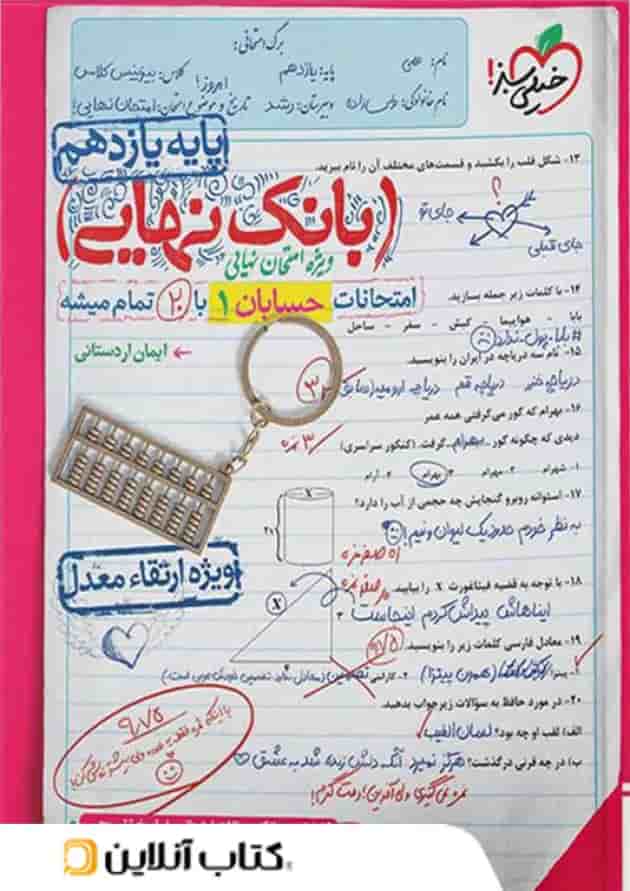 خیلی سبز!
برگ امتحانی:
نام: علی
پایه: یازدهم
کلاس: بیزینس کلاس
نام خانوادگی:
دبیرستان: رشد
تاریخ و موضوع امتحان: امتحان نهایی! امروز!
پایه یازدهم
(بانک نهایی)
ویژه امتحان نهایی
امتحانات حسابان ۱ با ۲۰ تمام میشه
ایمان اردستانی
۱۳- شکل قلب را بکشید و قسمت‌های مختلف آن را نام ببرید.
؟
جای تو
جای قبلی
۱۴- با کلمات زیر جمله بسازید.
بابا - هواپیما - کیش - سفر - ساحل
# بابا_پول_ندارد
۱۵- نام سه دریاچه در ایران را بنویسید.
دریاچه خزر دریاچه قم دریاچه ارومیه (سابق)
۳
۱۶- بهرام که گور می‌گرفتی همه عمر
دیدی که چگونه گور بهرام گرفت. (کنکور سراسری)
۳ نمره
۱- شهرام ۲- مهرام ۳- بهرام ۴- آرام
۱۷- استوانه روبرو گنجایش چه حجمی از آب را دارد؟
x
۲۱
به نظر خودم حدود یک لیوان و نیم!
۵۱ صدم نمره
۱۸- با توجه به قضیه فیثاغورث X را بیابید.
X
۳
ایناهاش پیداش کردم اینجاست
۱۹- معادل فارسی کلمات زیر را بنویسید.
۱- پیتزا (همون پیتزا) ۲- گارانتی
۲۰- در مورد حافظ به سؤالات زیر جواب بدهید.
الف) لقب او چه بود؟ لسان الغیب
ب) در چه قرنی درگذشت؟ هرگز نمیرد آنکه دلش زنده شد به عشق
ویژه ارتقاء معدل
۹/۷۵
کتاب آنلاین